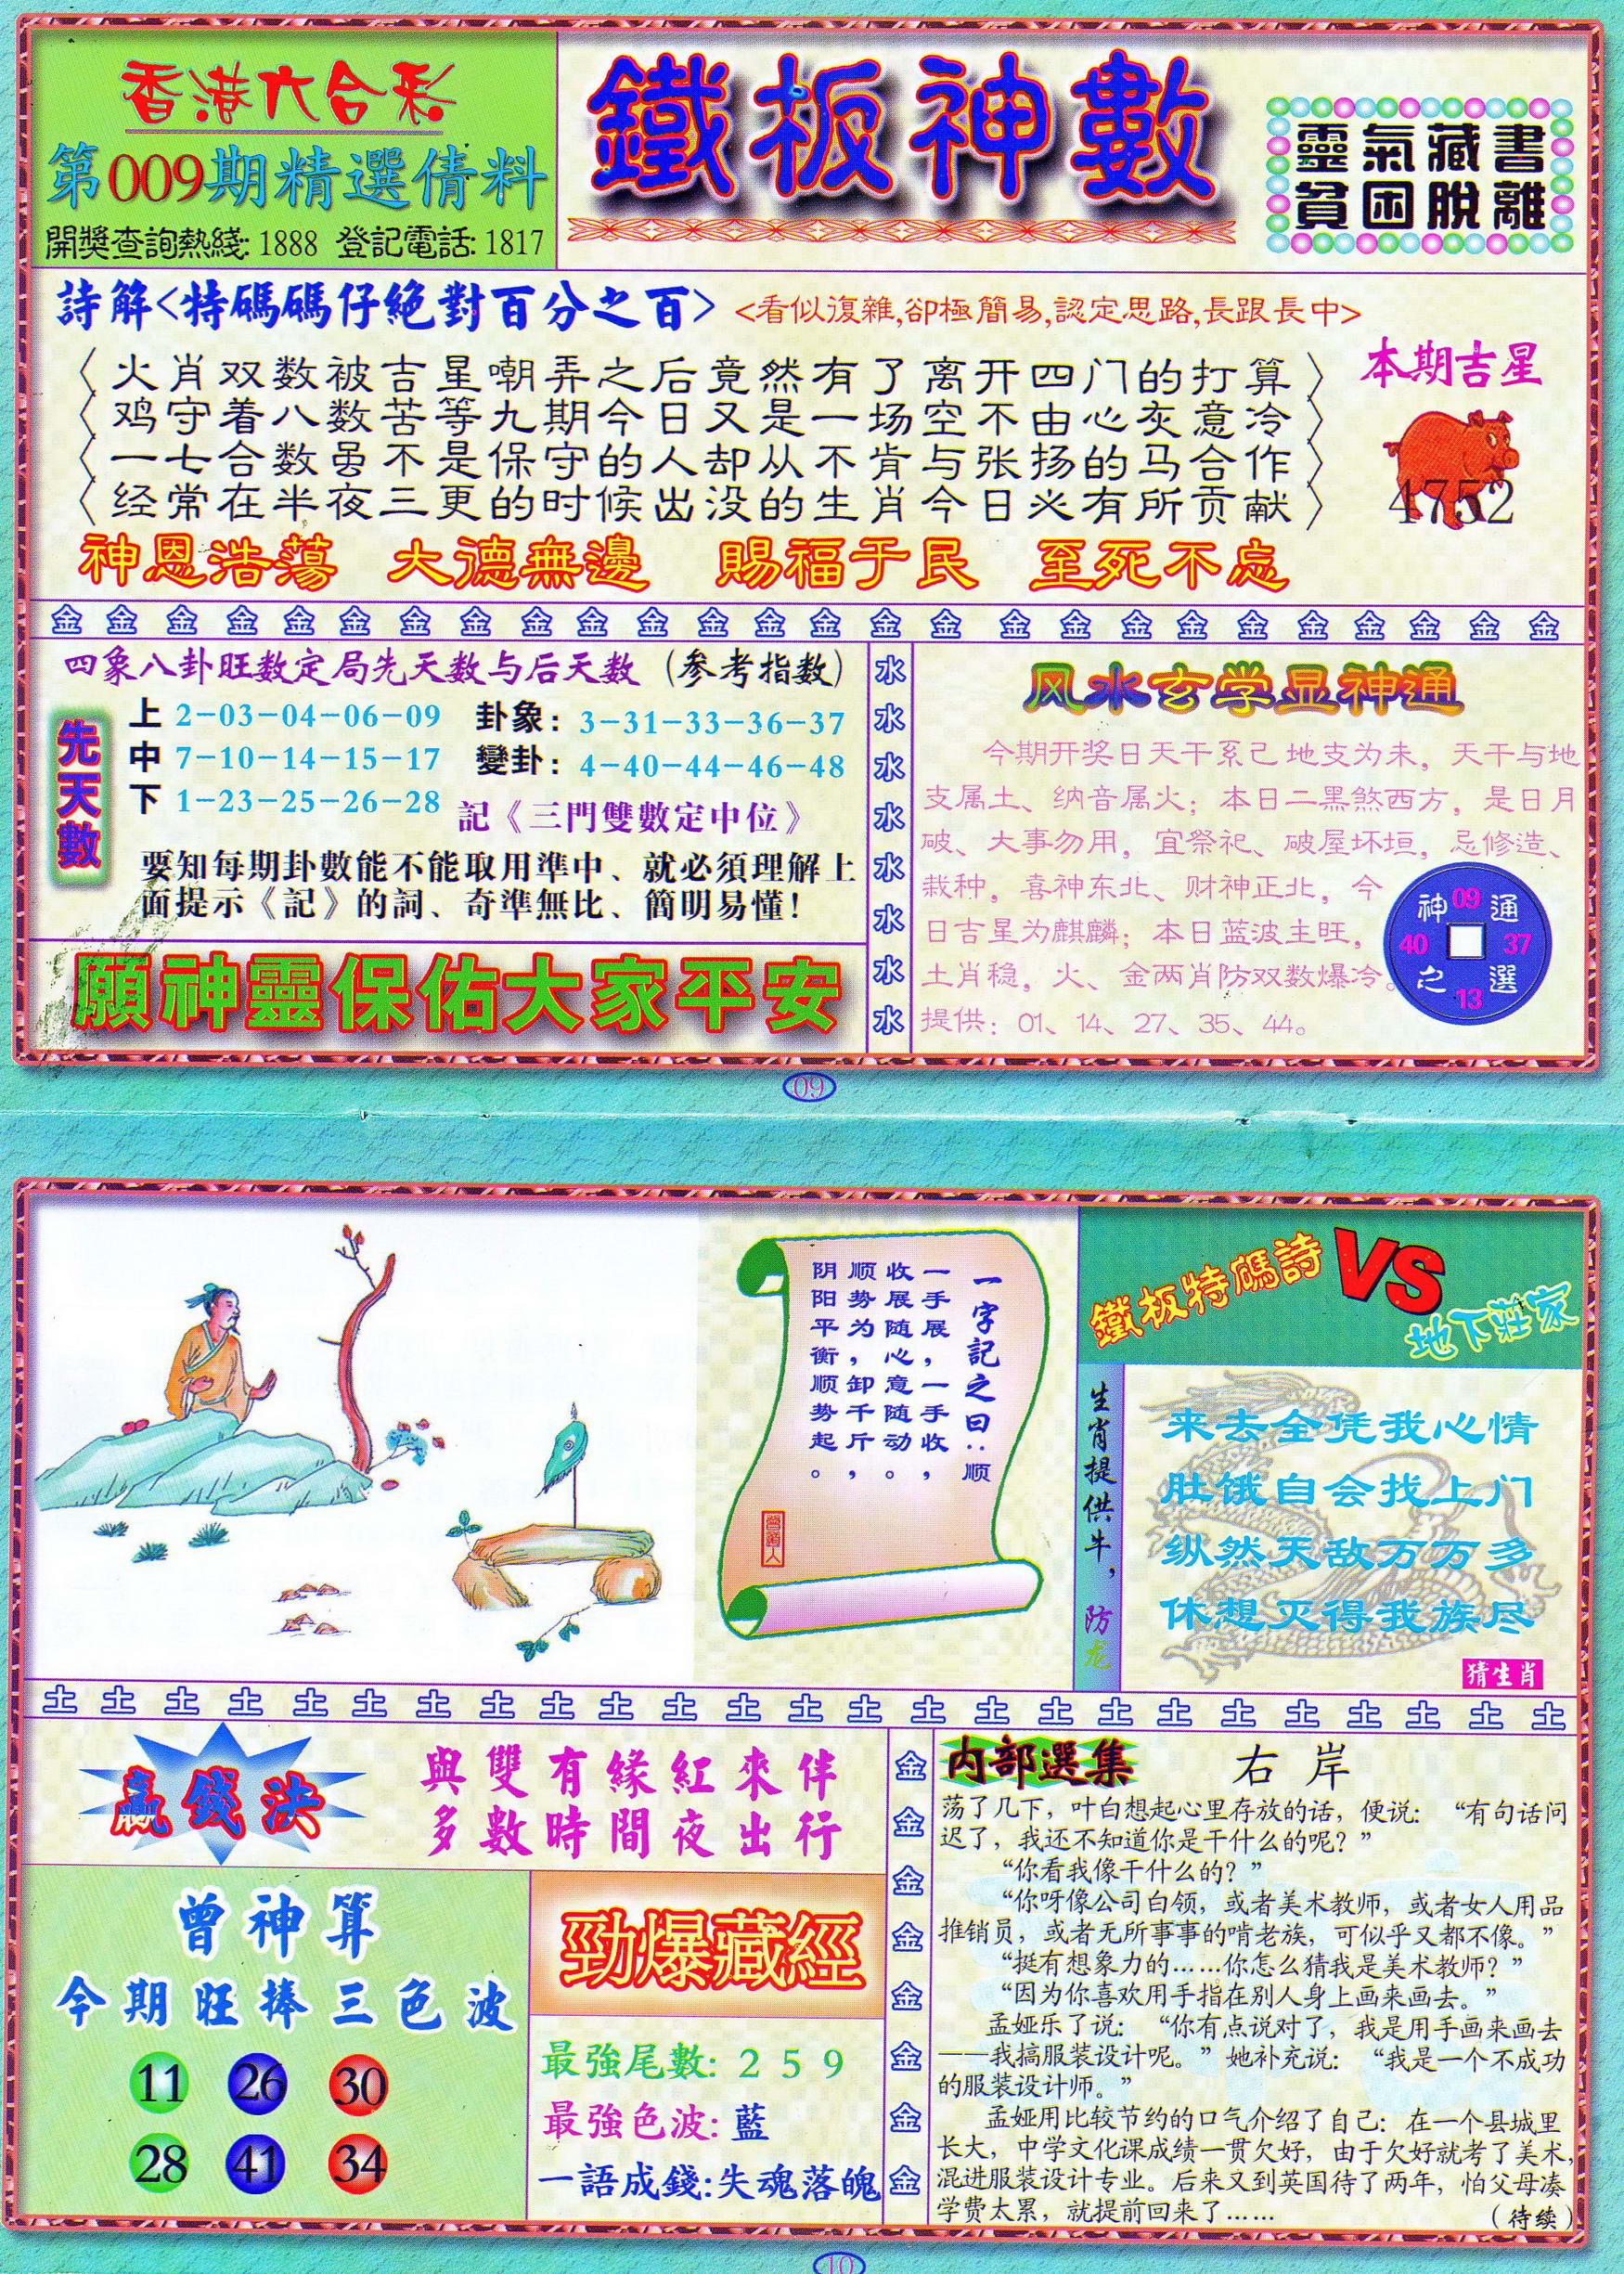 香港六合彩
第009期精選倩料
開獎查詢熱綫: 1888 登記電話: 1817
鐵板神數
靈氣藏書
貧困脫離
詩解<特碼碼仔絕對百分之百> <看似復雜,卻極簡易,認定思路,長跟長中>
〈火肖双数被吉星嘲弄之后竟然有了离开四门的打算〉
〈鸡守着八数苦等九期今日又是一场空不由心灰意冷〉
〈一七合数虽不是保守的人却从不肯与张扬的马合作〉
〈经常在半夜三更的时候出没的生肖今日必有所贡献〉
本期吉星
4752
神恩浩蕩 大德無邊 賜福于民 至死不忘
金 金 金 金 金 金 金 金 金 金 金 金 金 金 金 金 金 金 金 金 金 金 金 金 金 金
四象八卦旺数定局先天数与后天数 (参考指数)
先天數
上 2-03-04-06-09 卦象: 3-31-33-36-37
中 7-10-14-15-17 變卦: 4-40-44-46-48
下 1-23-25-26-28 記《三門雙數定中位》
要知每期卦數能不能取用準中、就必須理解上
面提示《記》的詞、奇準無比、簡明易懂!
願神靈保佑大家平安
水
水
水
水
水
水
水
水
风水玄学显神通
今期开奖日天干系己地支为未，天干与地
支属土、纳音属火；本日二黑煞西方，是日月
破、大事勿用，宜祭祀、破屋坏垣，忌修造、
栽种，喜神东北、财神正北，今
日吉星为麒麟；本日蓝波主旺，
土肖稳，火、金两肖防双数爆冷。
提供：01、14、27、35、44。
神 09 通
40 37
之 13 選
09
一字記之曰：顺
一手展，一手收，
收展随心意随动。
顺势为，卸千斤，
阴阳平衡顺势起。
曾道人
鐵板特碼詩 VS 地下莊家
生肖提供牛，防龙
来去全凭我心情
肚饿自会找上门
纵然天敌万万多
休想灭得我族尽
猜生肖
土 土 土 土 土 土 土 土 土 土 土 土 土 土 土 土 土 土 土 土 土 土 土 土 土
贏錢決
與雙有緣紅來伴
多數時間夜出行
曾神算
今期旺捧三色波
11 26 30
28 41 34
勁爆藏經
最強尾數: 2 5 9
最強色波: 藍
一語成錢:失魂落魄
金
金
金
金
金
金
金
金
内部選集 右岸
荡了几下，叶白想起心里存放的话，便说：“有句话问
迟了，我还不知道你是干什么的呢？”
“你看我像干什么的？”
“你呀像公司白领，或者美术教师，或者女人用品
推销员，或者无所事事的啃老族，可似乎又都不像。”
“挺有想象力的……你怎么猜我是美术教师？”
“因为你喜欢用手指在别人身上画来画去。”
孟娅乐了说：“你有点说对了，我是用手画来画去
——我搞服装设计呢。”她补充说：“我是一个不成功
的服装设计师。”
孟娅用比较节约的口气介绍了自己：在一个县城里
长大，中学文化课成绩一贯欠好，由于欠好就考了美术，
混进服装设计专业。后来又到英国待了两年，怕父母凑
学费太累，就提前回来了……
（待续）
10